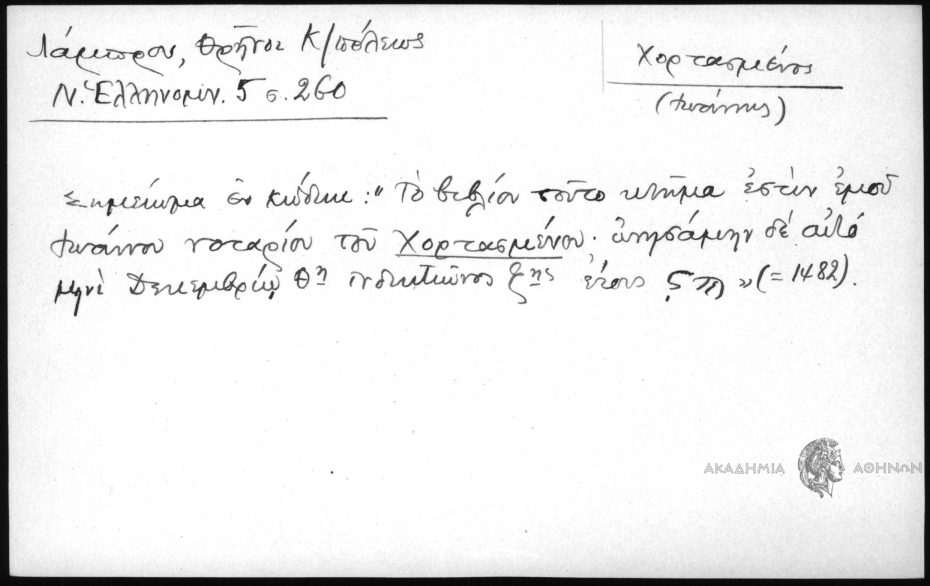 Λάμπρου, Θρῆνοι Κ/πόλεως
Ν. Ἑλληνομν. 5 σ. 260
Χορτασμένος
(Ἰωάννης)
Σημείωμα ἐν κώδικι: "Τὸ βιβλίον τοῦτο κτῆμα ἐστὶν ἐμοῦ
Ἰωάννου νοταρίου τοῦ Χορτασμένου· ὠνησάμην δὲ αὐτό
μηνὶ Δεκεμβρίῳ θῃ ἰνδικτιῶνος ζης ἔτους ϛπ" (= 1482).
ΑΚΑΔΗΜΙΑ ΑΘΗΝΩΝ